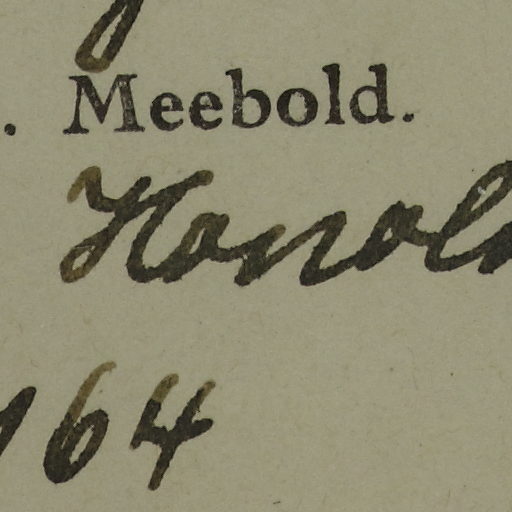 . Meebold.
Honol
164